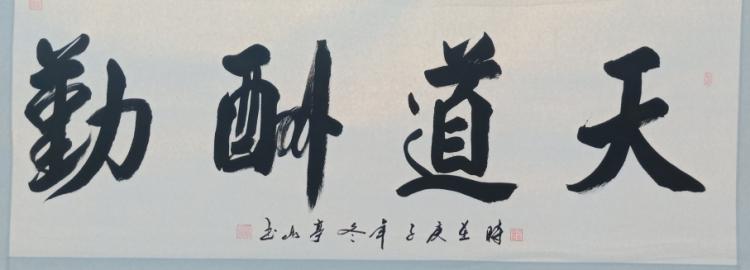 天道酬勤
時在庚子年冬亭山书